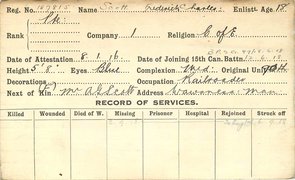 Reg. No. 147815 Name Scott Frederick Charles Enlistt. Age 18
Rank Pte Company 1 Religion C of E
Date of Attestation 8/1/16 Date of Joining 15th Can. Battn.
Height 5' 8" Eyes Blue Complexion Original Unit
Decorations Occupation Railroader
Next of Kin Mr A Scott Address Man
RECORD OF SERVICES.
Killed Wounded Died of W. Missing Prisoner Hospital Rejoined Struck off